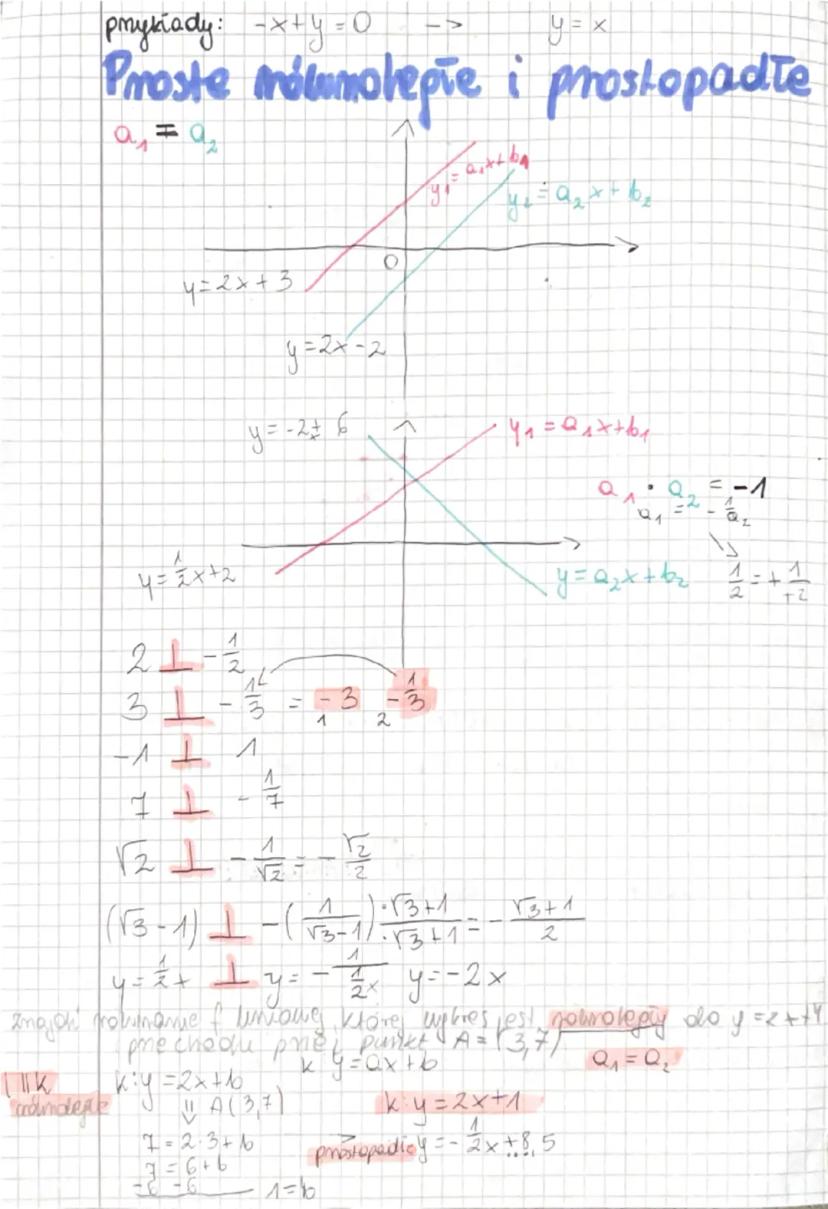 przykłady: -x+y=0 -> y=x
Proste równoległe i prostopadłe
a₁ = a₂
y₁=a₁x+b₁
y₂=a₂x+b₂
0
y=2x+3
y=2x-2
y=-2x+6
y₁=a₁x+b₁
a₁·a₂=-1
a₁=-1/a₂
y=1/2x+2
y=a₂x+b₂
1/2=+1/+2
2 ⊥ -1/2
3 ⊥ -1/3 = -3 -1/3
1 2
-1 ⊥ 1
7 ⊥ -1/7
√2 ⊥ -1/√2=-√2/2
(√3-1) ⊥ -(1/√3-1)·√3+1/·√3+1=-√3+1/2
y=1/2x ⊥ y=-1/1/2x y=-2x
znajdź równanie f liniowej której wykres jest równoległy do y=2x+4
przechodzi przez punkt A=(3,7)
k y=ax+b
a₁=a₂
l||k k:y=2x+b
równoległe A(3,7) k:y=2x+1
7=2·3+b
prostopadłe y=-1/2x+8,5
7=6+b
-6 -6
1=b